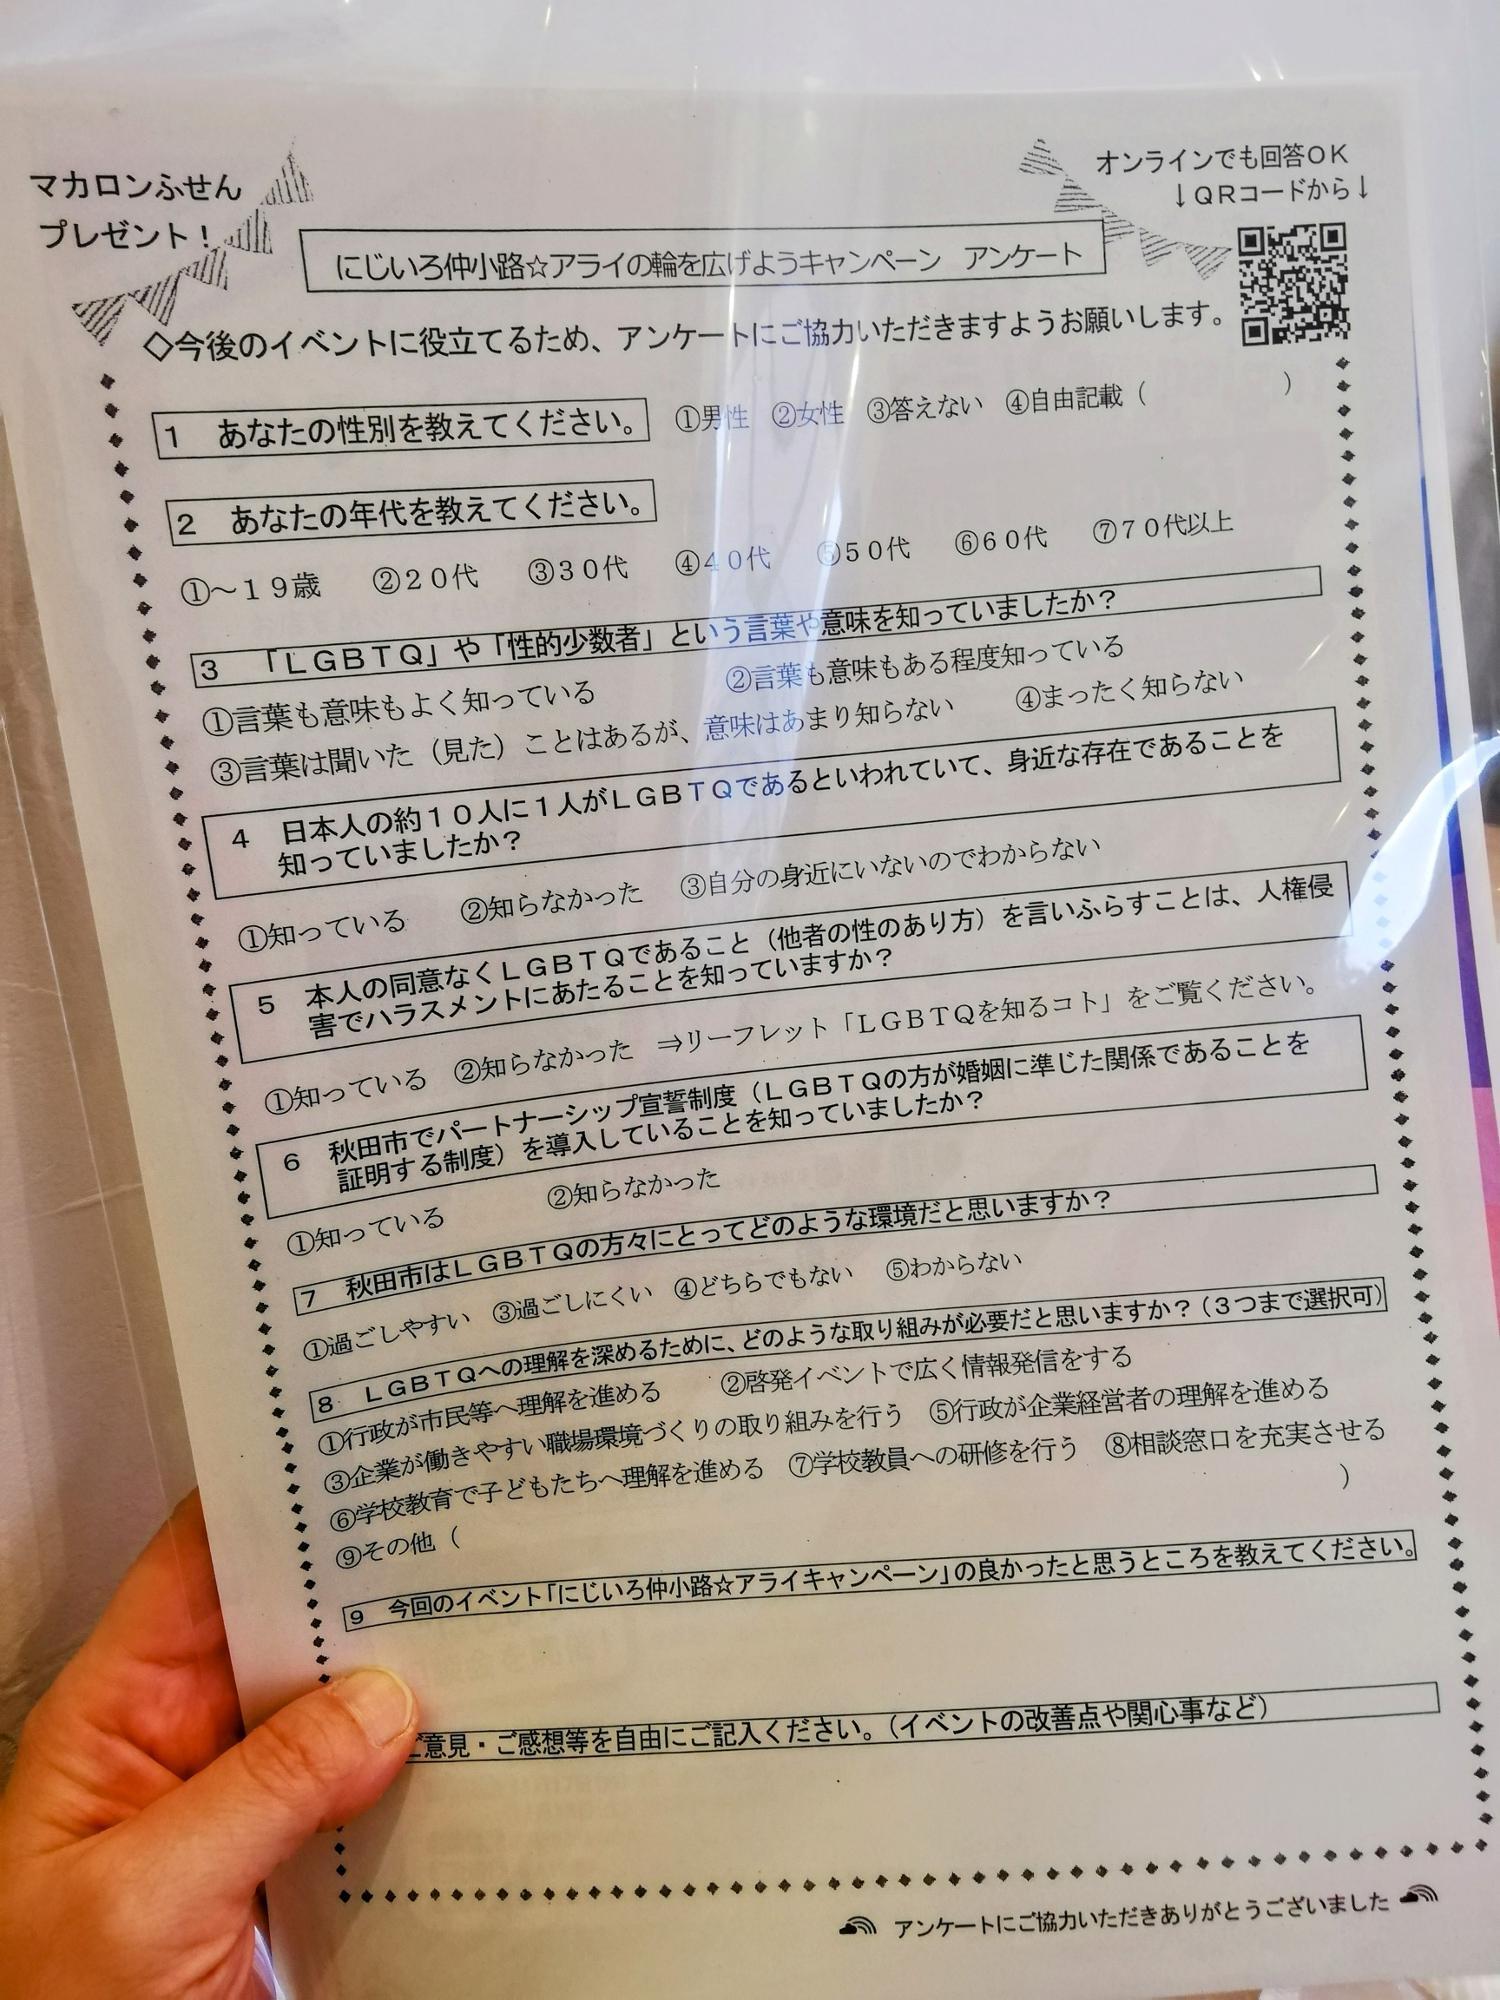 マカロンふせん
プレゼント！
オンラインでも回答ＯＫ
↓ＱＲコードから↓
にじいろ仲小路☆アライの輪を広げようキャンペーン　アンケート
◇今後のイベントに役立てるため、アンケートにご協力いただきますようお願いします。
１　あなたの性別を教えてください。　①男性　②女性　③答えない　④自由記載（　　　　　）
２　あなたの年代を教えてください。
①～１９歳　②２０代　③３０代　④４０代　⑤５０代　⑥６０代　⑦７０代以上
３　「ＬＧＢＴＱ」や「性的少数者」という言葉や意味を知っていましたか？
①言葉も意味もよく知っている　②言葉も意味もある程度知っている
③言葉は聞いた（見た）ことはあるが、意味はあまり知らない　④まったく知らない
４　日本人の約１０人に１人がＬＧＢＴＱであるといわれていて、身近な存在であることを
知っていましたか？
①知っている　②知らなかった　③自分の身近にいないのでわからない
５　本人の同意なくＬＧＢＴＱであること（他者の性のあり方）を言いふらすことは、人権侵
害でハラスメントにあたることを知っていますか？
①知っている　②知らなかった　⇒リーフレット「ＬＧＢＴＱを知るコト」をご覧ください。
６　秋田市でパートナーシップ宣誓制度（ＬＧＢＴＱの方が婚姻に準じた関係であることを
証明する制度）を導入していることを知っていましたか？
①知っている　②知らなかった
７　秋田市はＬＧＢＴＱの方々にとってどのような環境だと思いますか？
①過ごしやすい　③過ごしにくい　④どちらでもない　⑤わからない
８　ＬＧＢＴＱへの理解を深めるために、どのような取り組みが必要だと思いますか？（３つまで選択可）
①行政が市民等へ理解を進める　②啓発イベントで広く情報発信をする
③企業が働きやすい職場環境づくりの取り組みを行う　⑤行政が企業経営者の理解を進める
⑥学校教育で子どもたちへ理解を進める　⑦学校教員への研修を行う　⑧相談窓口を充実させる
⑨その他（　　　　　）
９　今回のイベント「にじいろ仲小路☆アライキャンペーン」の良かったと思うところを教えてください。
ご意見・ご感想等を自由にご記入ください。（イベントの改善点や関心事など）
アンケートにご協力いただきありがとうございました